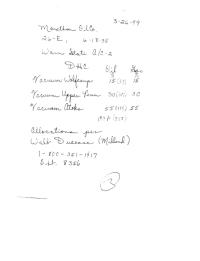 3-26-99
Marathon Oil Co.
26-E, 6-18-35
Warn State A/C-2
DHC Oil Gas
Vacuum Wolfcamp 15 (15) 15
Vacuum Upper Penn 30 (30) 30
Vacuum Abo 55 (55) 55
Allocations per
Walt Duease (Midland)
1-800-351-1417
Ext. 8356
3